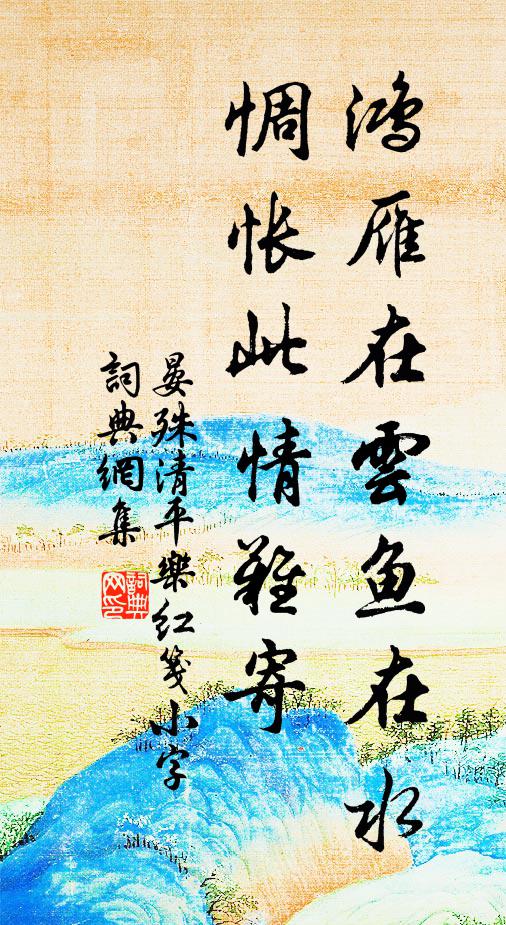 鸿雁在雲鱼在水
惆怅此情難寄
晏殊清平樂红箋小字
詞典網集
詞典网印